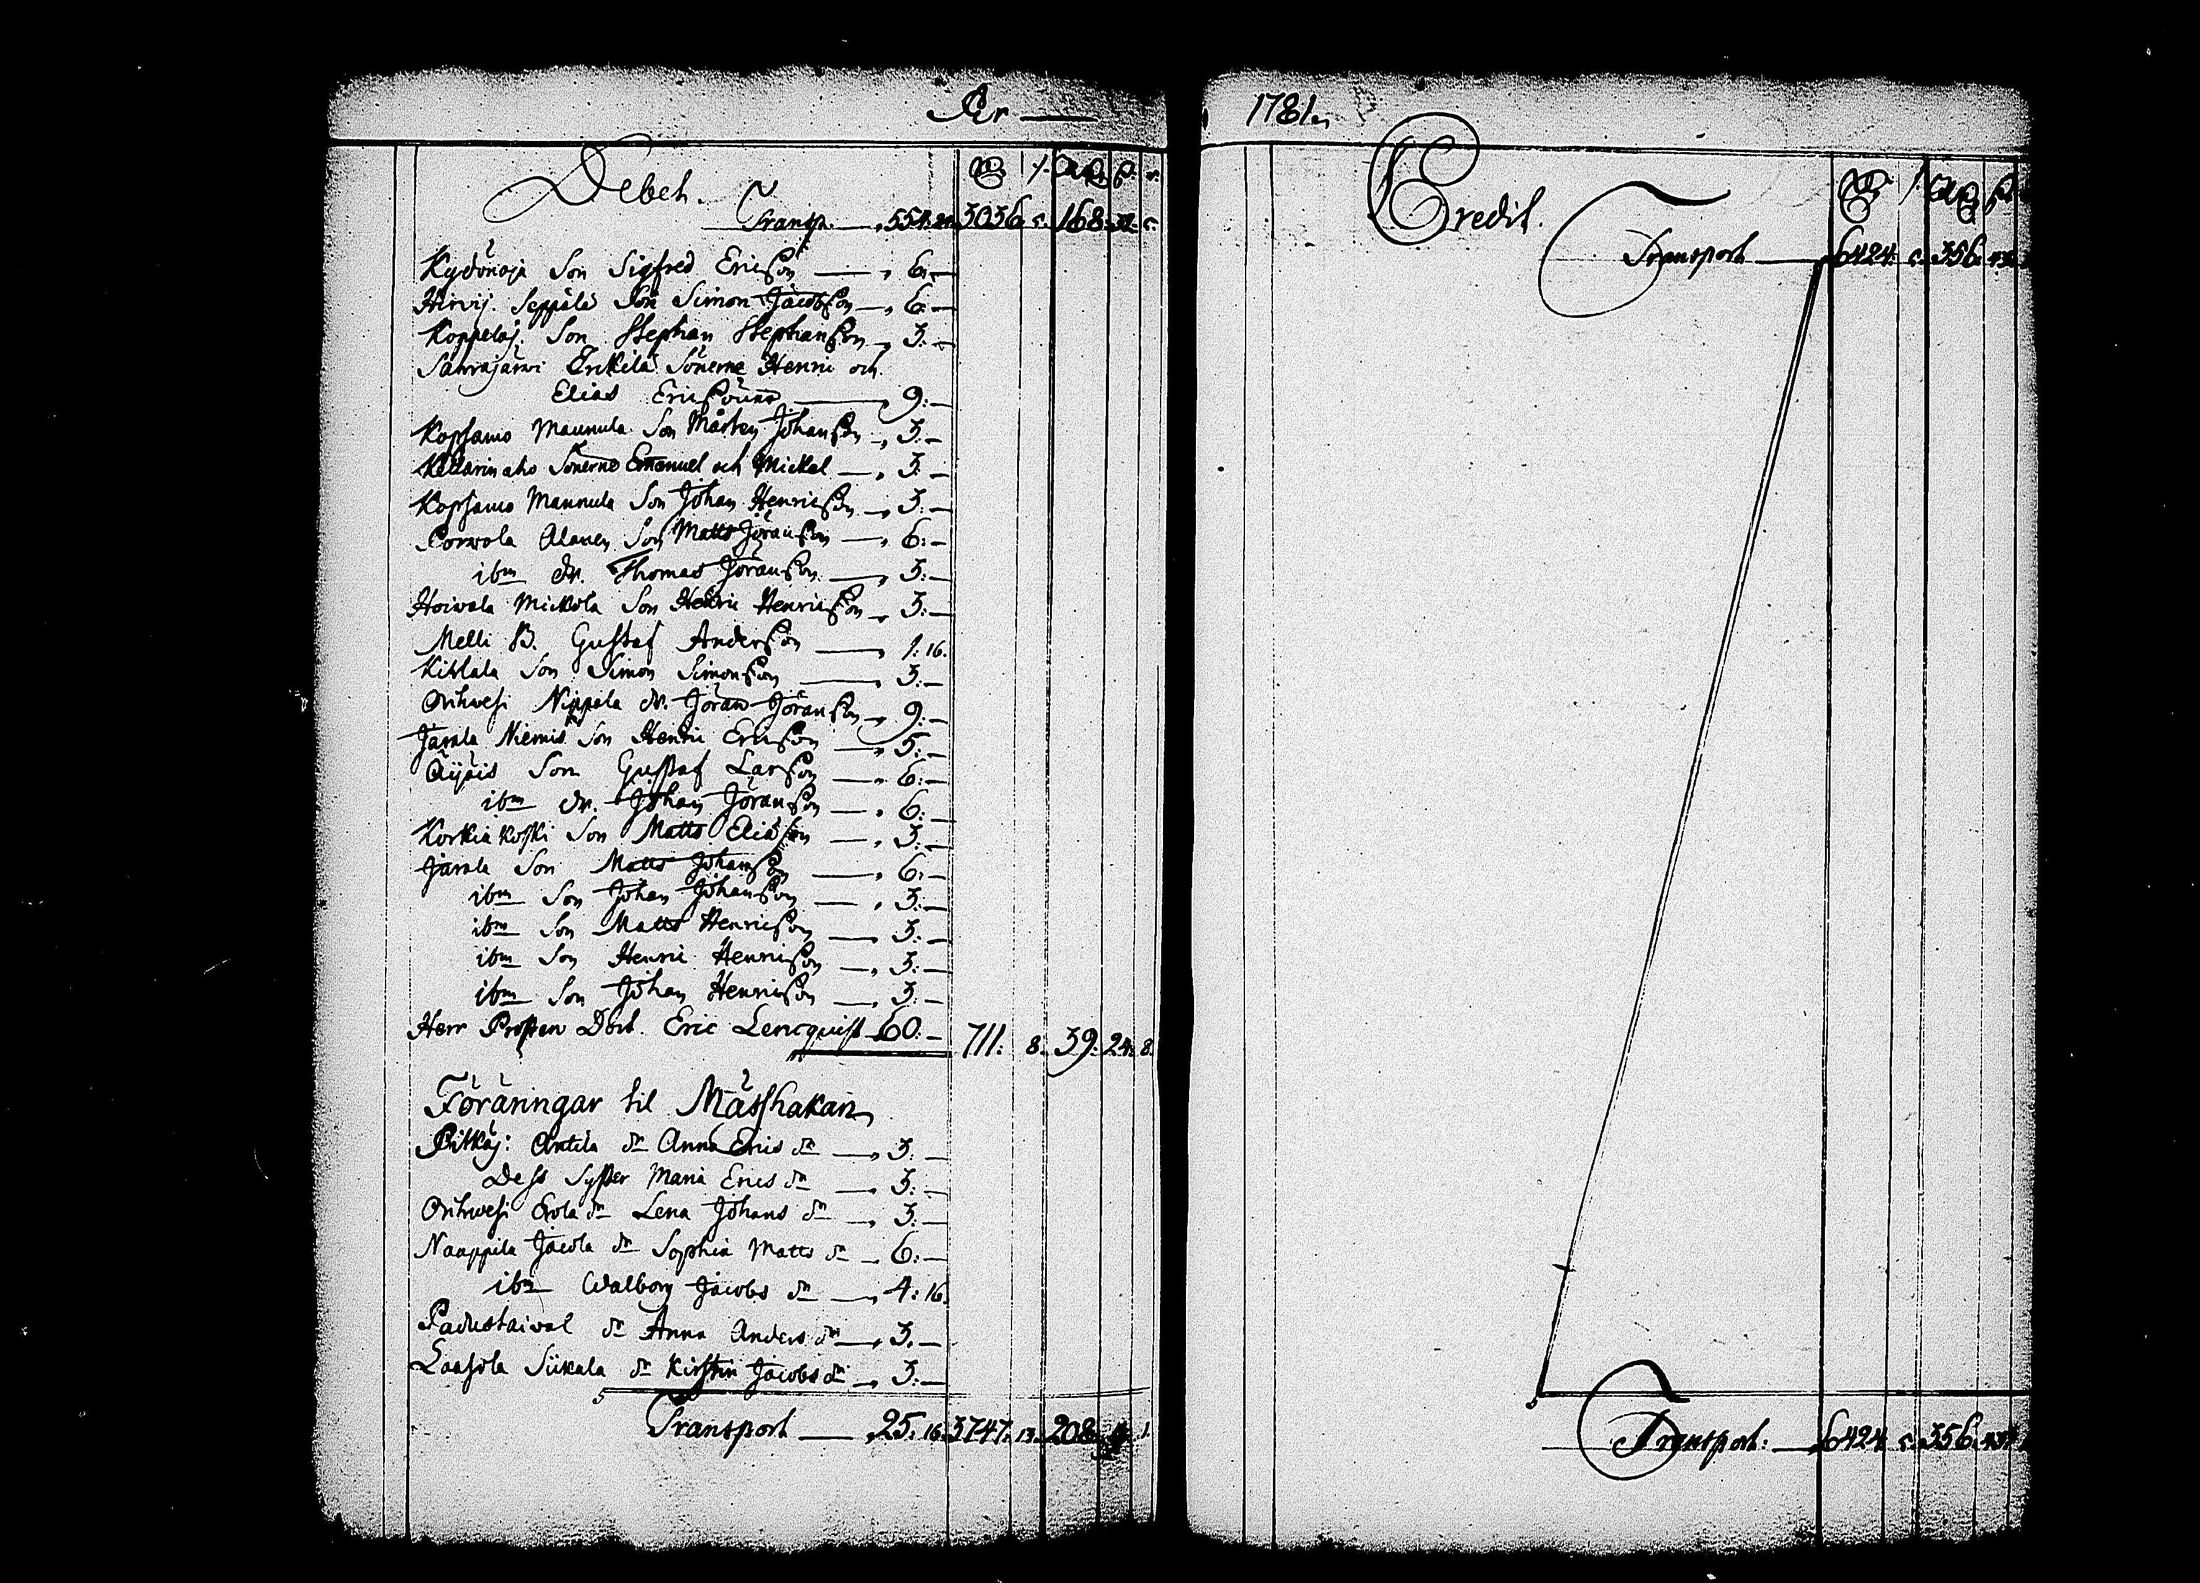 År ——
Debet.
Transp. — 554: 24. 3036. 5. 168: 32. 5.
Kydönoja Son Sigfred Ericsson — 6: —
Hirvij. Seppälä Son Simon Jacobsson — 6: —
Koppelaj. Son Stephan Stephansson — 3: —
Sänräjärwi Erkilä Sönerne Henric och
Elias Ericssöner — 9: —
Kopsamo Mannula Son Mårten Johansson — 3: —
Kellarinaho Sönerne Emanuel och Mickel — 3: —
Kopsamo Mannula Son Johan Henricsson — 3: —
Porwola Alanen Son Matts Jöransson — 6: —
ibm dr. Thomas Jöransson — 3: —
Hoivala Mickola Son Henric Henricsson — 3: —
Melli B. Gustaf Andersson — 1: 16.
Kittala Son Simon Simonsson — 3: —
Orihwesi Nippala dr. Jöran Jöransson — 9: —
Jamala Niemis Son Henric Ericsson — 5: —
Äijäis Son Gustaf Larsson — 6: —
ibm dr. Johan Jöransson — 6: —
Korkiakoski Son Matts Eliasson — 3: —
Jamala Son Matts Johansson — 6: —
ibm Son Johan Johansson — 3: —
ibm Son Matts Henricsson — 3: —
ibm Son Henric Henricsson — 3: —
ibm Son Johan Henricsson — 3: —
Herr Prosten Doct. Eric Lencquist 60: — 711: 8. 39: 24: 8.
Föräringar til Mässhakan
Pitkäj: Antila dr Anna Erics dr — 3: —
Dess Syster Maria Erics dr — 3: —
Orihwesi Erola dr Lena Johans dr — 3: —
Naappila Jacola dr Sophia Matts dr — 6: —
ibm Walborg Jacobs dr — 4: 16.
Padustaival dr Anna Anders dr — 3. —
Laasola Siikala dr Kirstin Jacobs dr — 3: —
Transport — 25: 16. 3747: 13. 208. 1.
1781.
Credit.
Transport — 6424: 5. 356.
Transport: — 6424 5. 356.